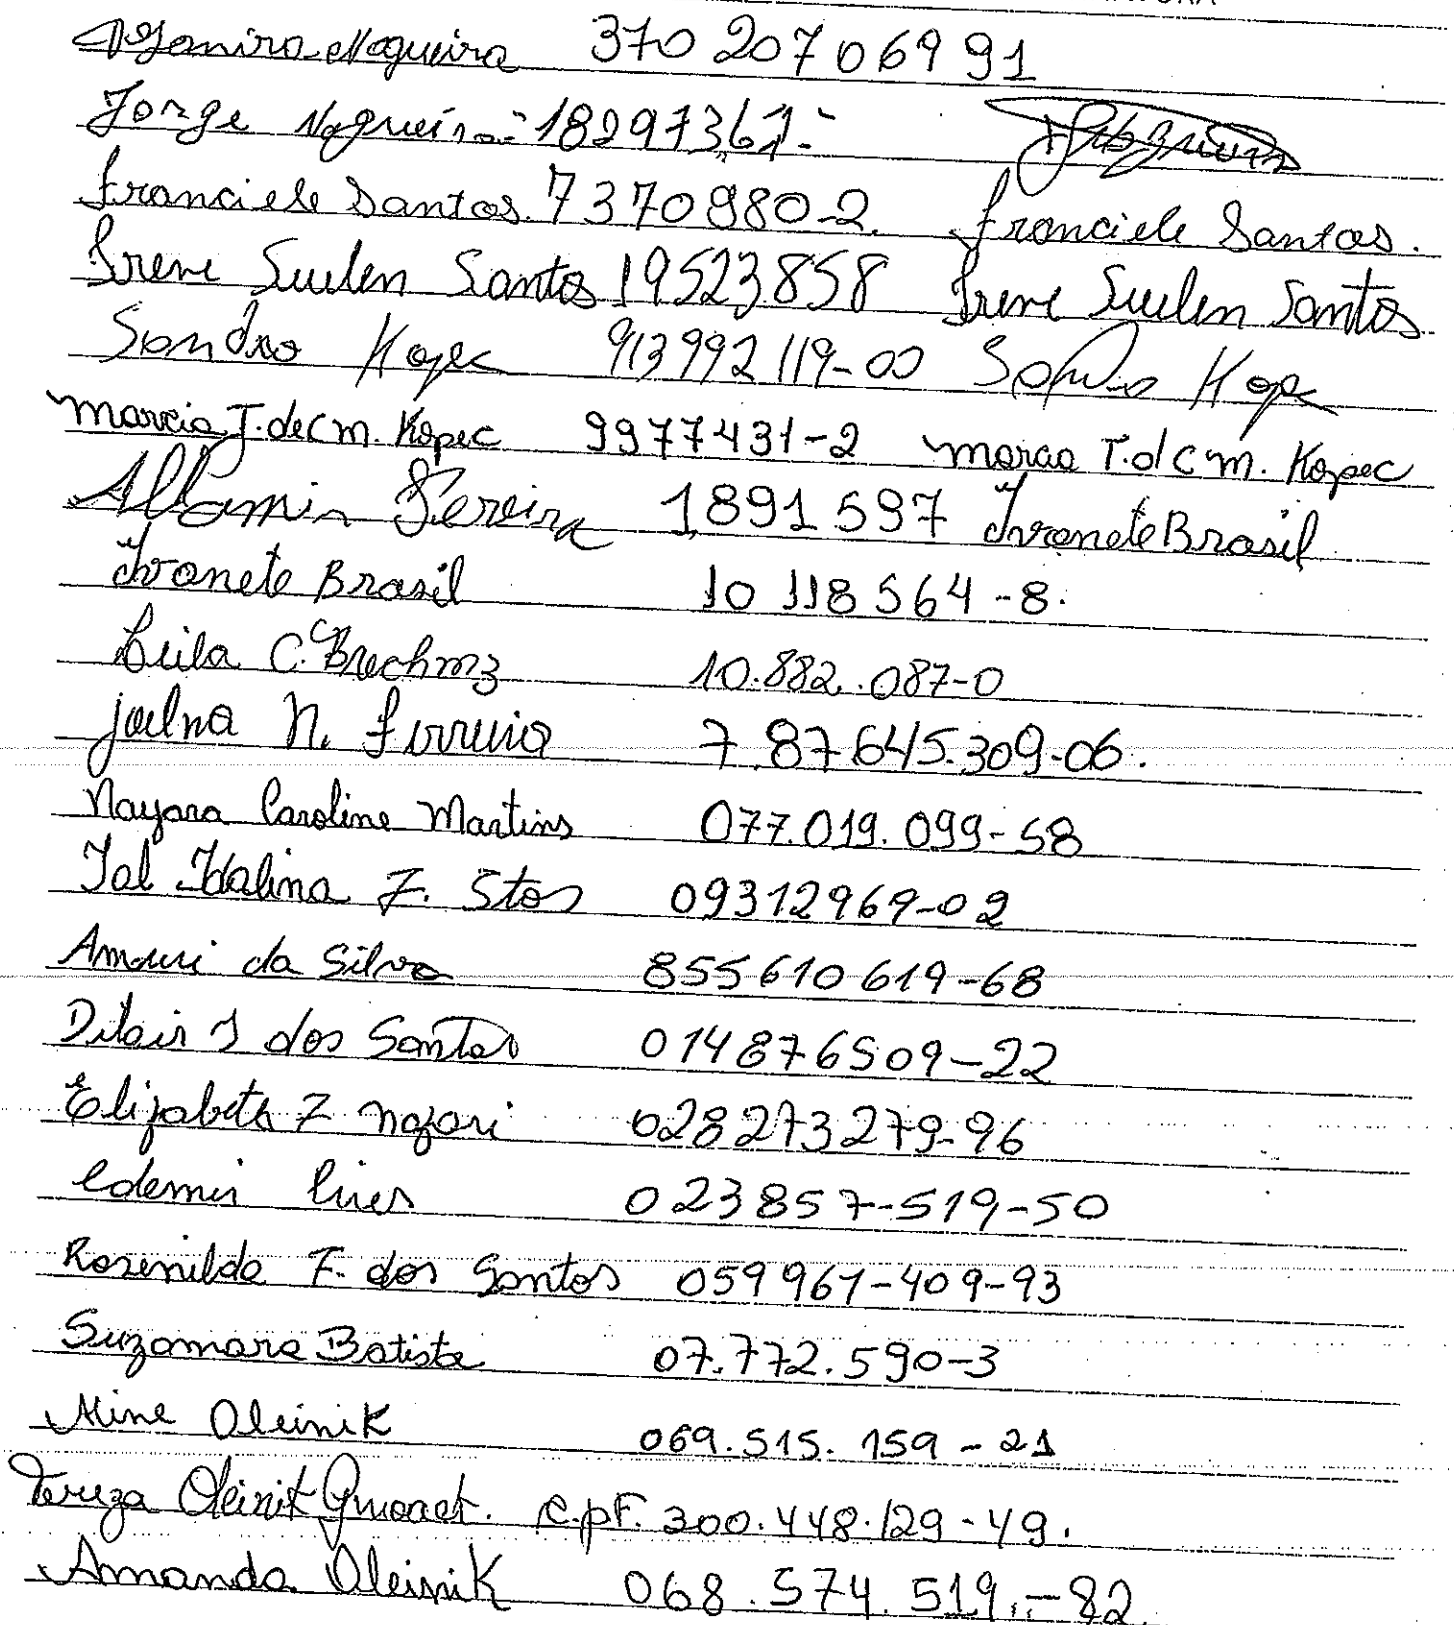 Nogueira 370 207 069 91
Jorge Nogueira - 18297361-
Franciele Santos. 7370980-2. Franciele Santos.
Irene Suelen Santos 19523858 Irene Suelen Santos
Sandro Kopec 913992119-00 Sandro Kopec
Marcia T. de C M. Kopec 9977431-2 Marcia T. d C M. Kopec
Pereira 1891597 Ivonete Brasil
Ivonete Brasil 10 118564-8.
Leila C. 10.882.087-0
Joelna N. Ferreira 7.87645.309-06.
Nayara Caroline Martins 077.019.099-58
Idalina F. Stos 09312969-02
Amauri da Silva 855610619-68
Dilair J dos Santos 014876509-22
Elizabeth F 028273279-96
Edemir Pires 023857-519-50
Rosenilda F. dos Santos 059961-409-93
Suzamara Batista 07.772.590-3
Aline Oleinik 069.515.159-21
Tereza Oleinik C.PF. 300.448.129-49.
Amanda Oleinik 068.574.519-82